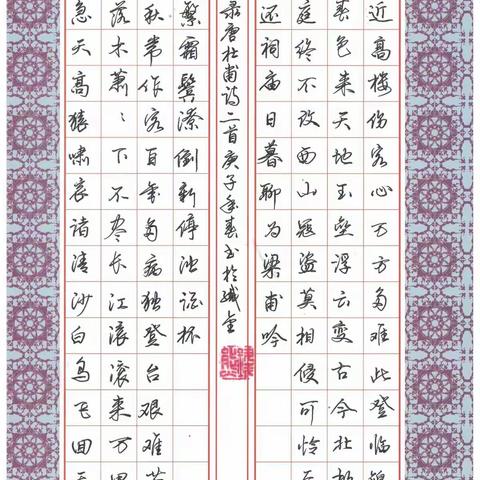 近高楼伤客心万方多难此登临锦
春色来天地玉垒浮云变古今北极
庭终不改西山寇盗莫相侵可怜
还祠庙日暮聊为梁甫吟
急天高猿啸哀渚清沙白鸟飞回
落木萧〻下不尽长江滚滚来万里
秋常作客百年多病独登台艰难苦
繁霜鬓潦倒新停浊酒杯
录唐杜甫诗二首庚子年春书於